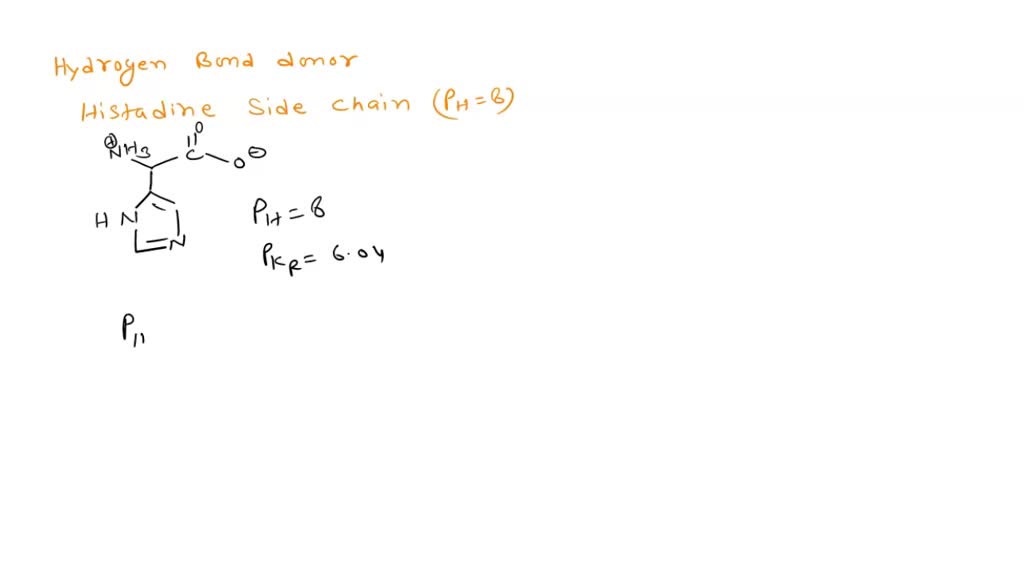 Hydrogen Bond donor
Histadine Side Chain (PH=8)
⊕NH3
C
O
O⊖
H N
N
PH = 8
PKR = 6.04
P